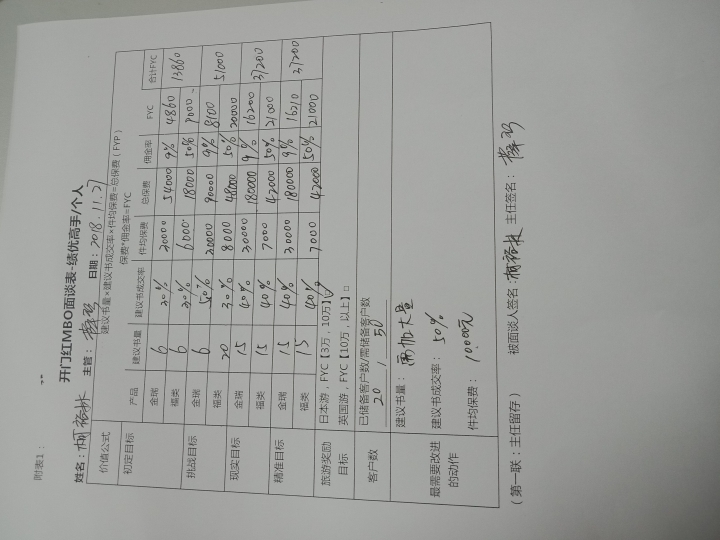 附表1：
开门红MBO面谈表-绩优高手/个人
姓名： 主管： 日期：2018.11.27
价值公式 建议书量×建议书成交率×件均保费=总保费（FYP）
保费*佣金率=FYC
产品 建议书量 建议书成交率 件均保费 总保费 佣金率 FYC 合计FYC
初定目标 金瑞 6 30% 30000 54000 9% 4860 13860
福类 6 30% 6000 18000 50% 9000
挑战目标 金瑞 6 50% 30000 90000 9% 8100 51000
福类 20 30% 8000 48000 50% 20000
现实目标 金瑞 15 40% 30000 180000 9% 16200 37200
福类 15 40% 7000 42000 50% 21000
精准目标 金瑞 15 40% 30000 180000 9% 16210 37200
福类 15 40% 7000 42000 50% 21000
旅游奖励 日本游，FYC【3万，10万】☑
目标 英国游，FYC【10万，以上】□
客户数 已储备客户数/需储备客户数
20 / 50
最需要改进
的动作
建议书量：需加大量
建议书成交率：50%
件均保费：10000元
（第一联：主任留存） 被面谈人签名： 主任签名：